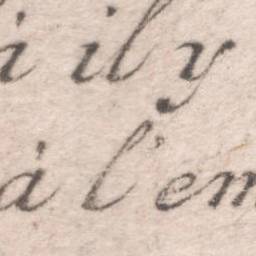 i il y
à l'em